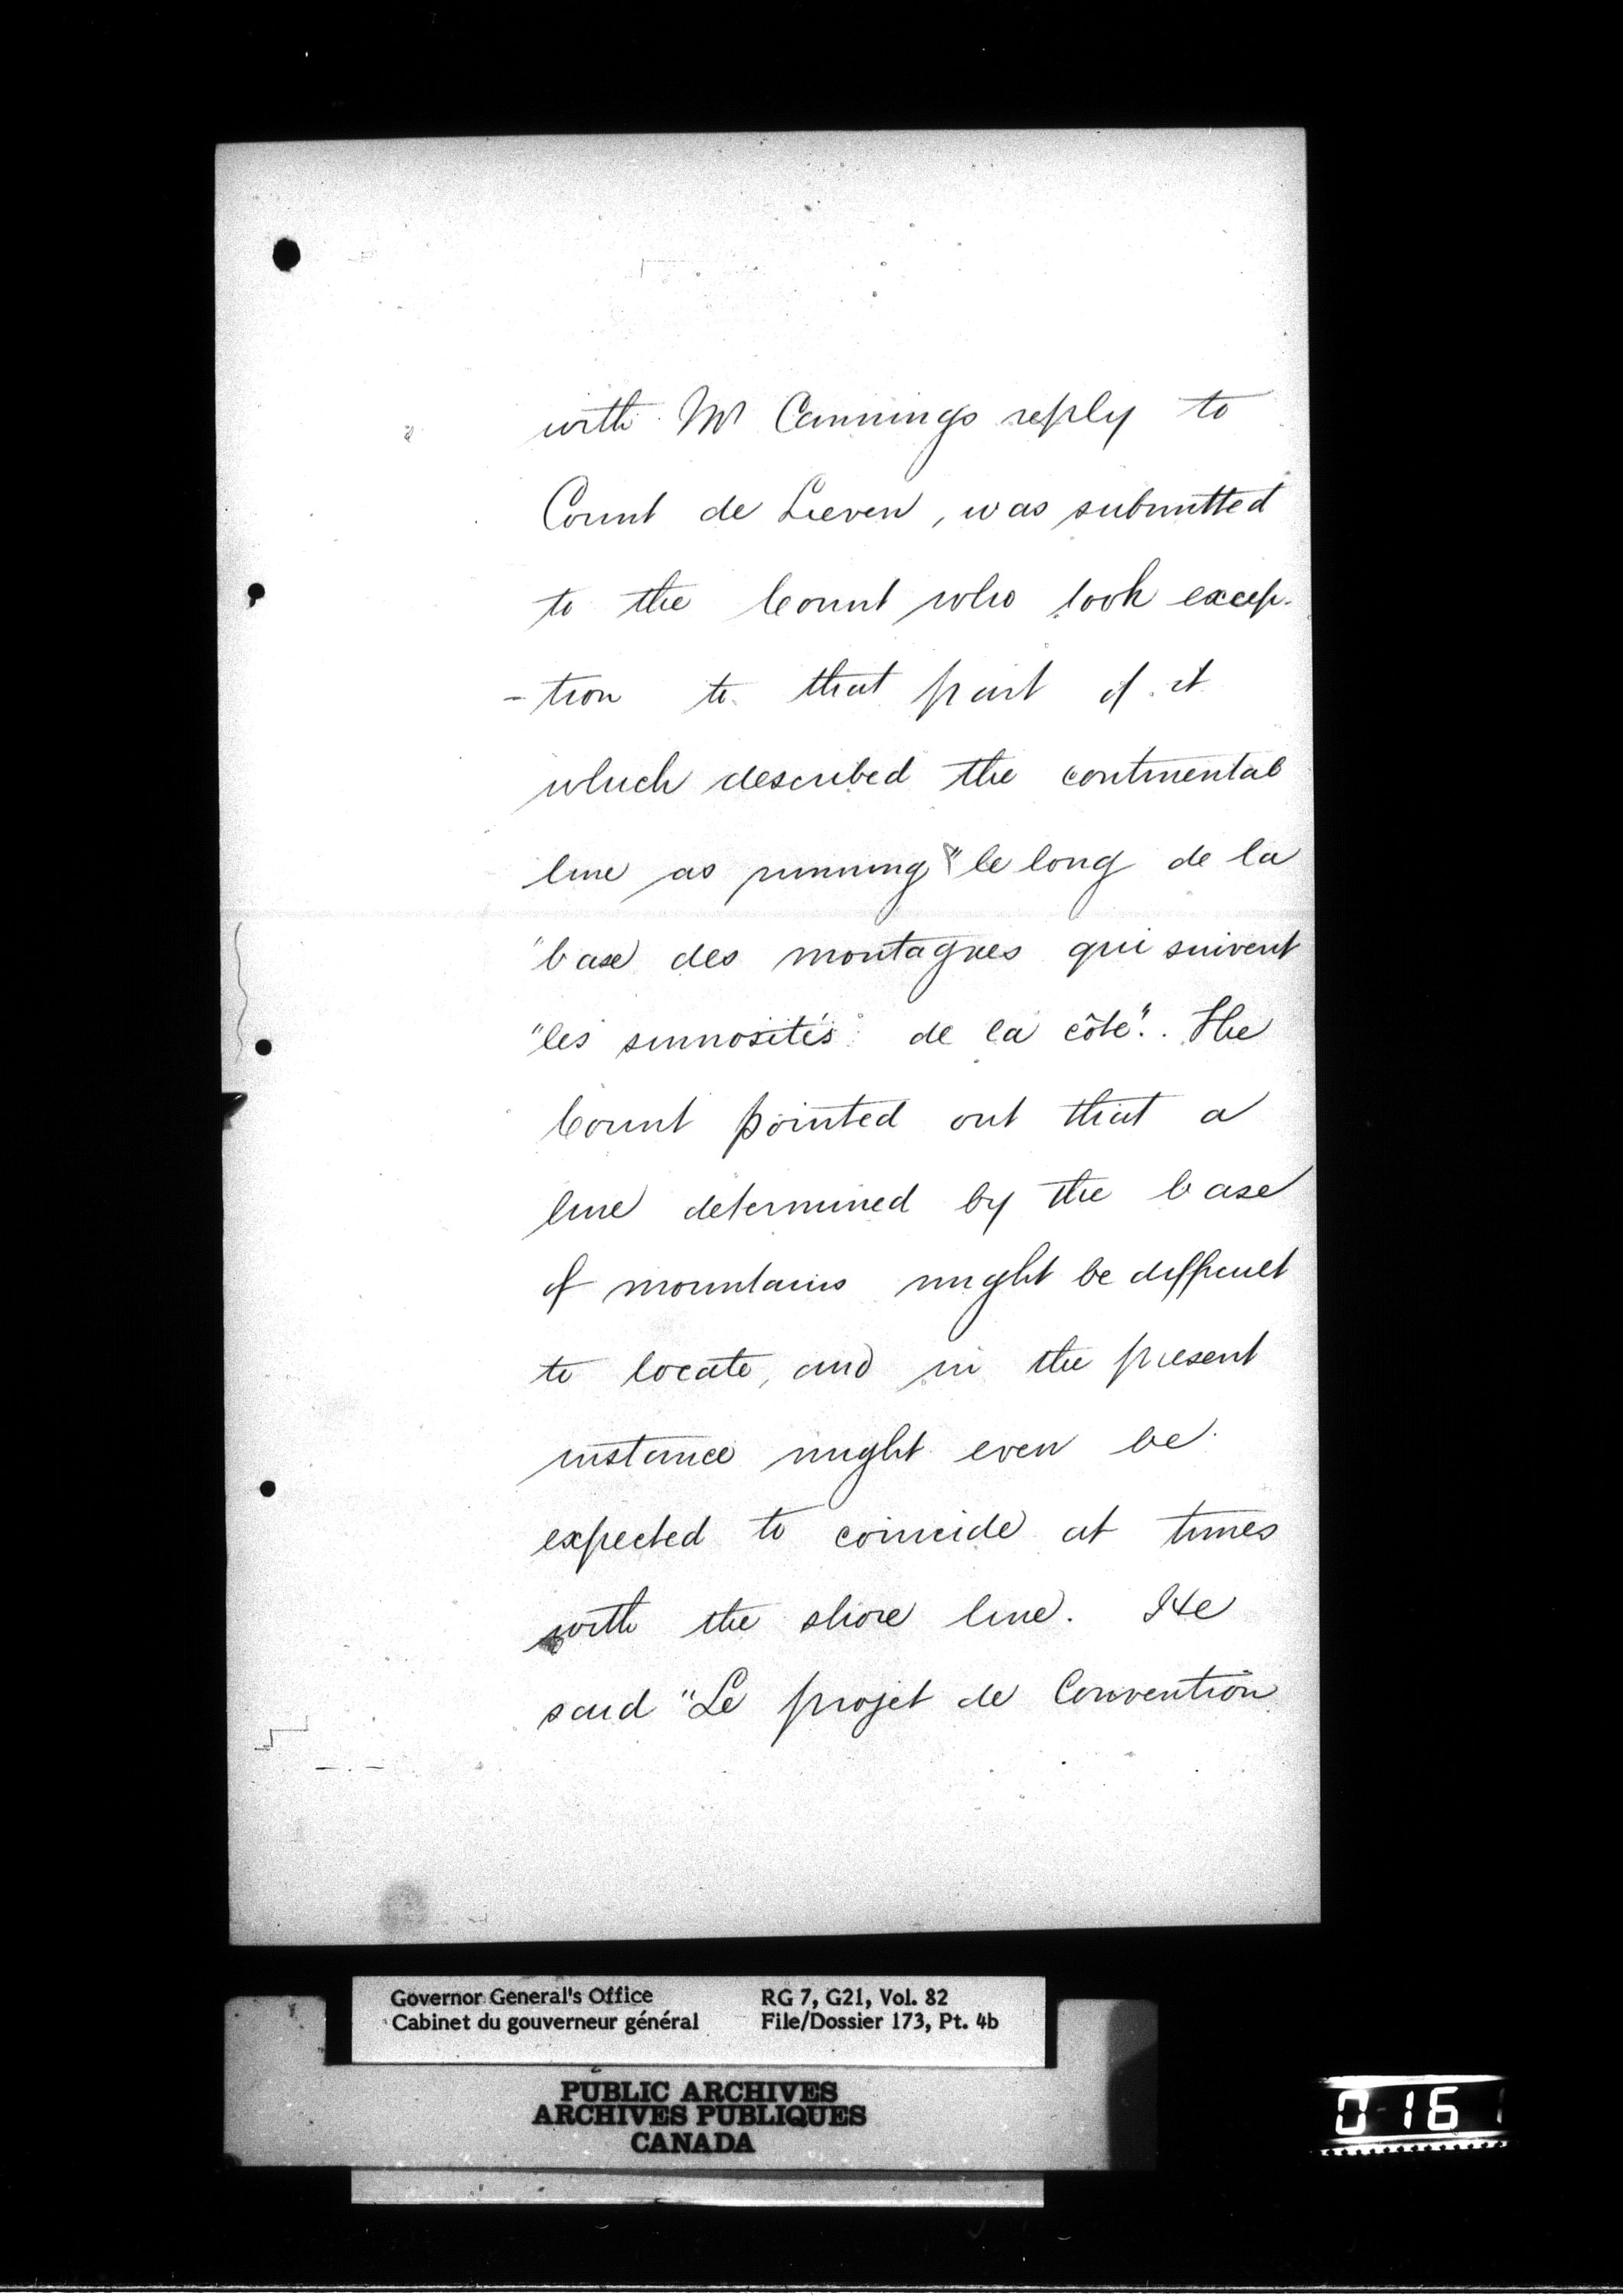 with Mr Cannings reply to
Count de Lieven, was submitted
to the Count who took excep-
-tion to that part of it
which described the continental
line as running "le long de la
"base des montagnes qui suivent
"les sinuosités de la côte". The
Count pointed out that a
line determined by the base
of mountains might be difficult
to locate, and in the present
instance might even be
expected to coincide at times
with the shore line. He
said "Le projet de Convention
Governor General's Office RG 7, G21, Vol. 82
Cabinet du gouverneur général File/Dossier 173, Pt. 4b
PUBLIC ARCHIVES
ARCHIVES PUBLIQUES
CANADA
0 16